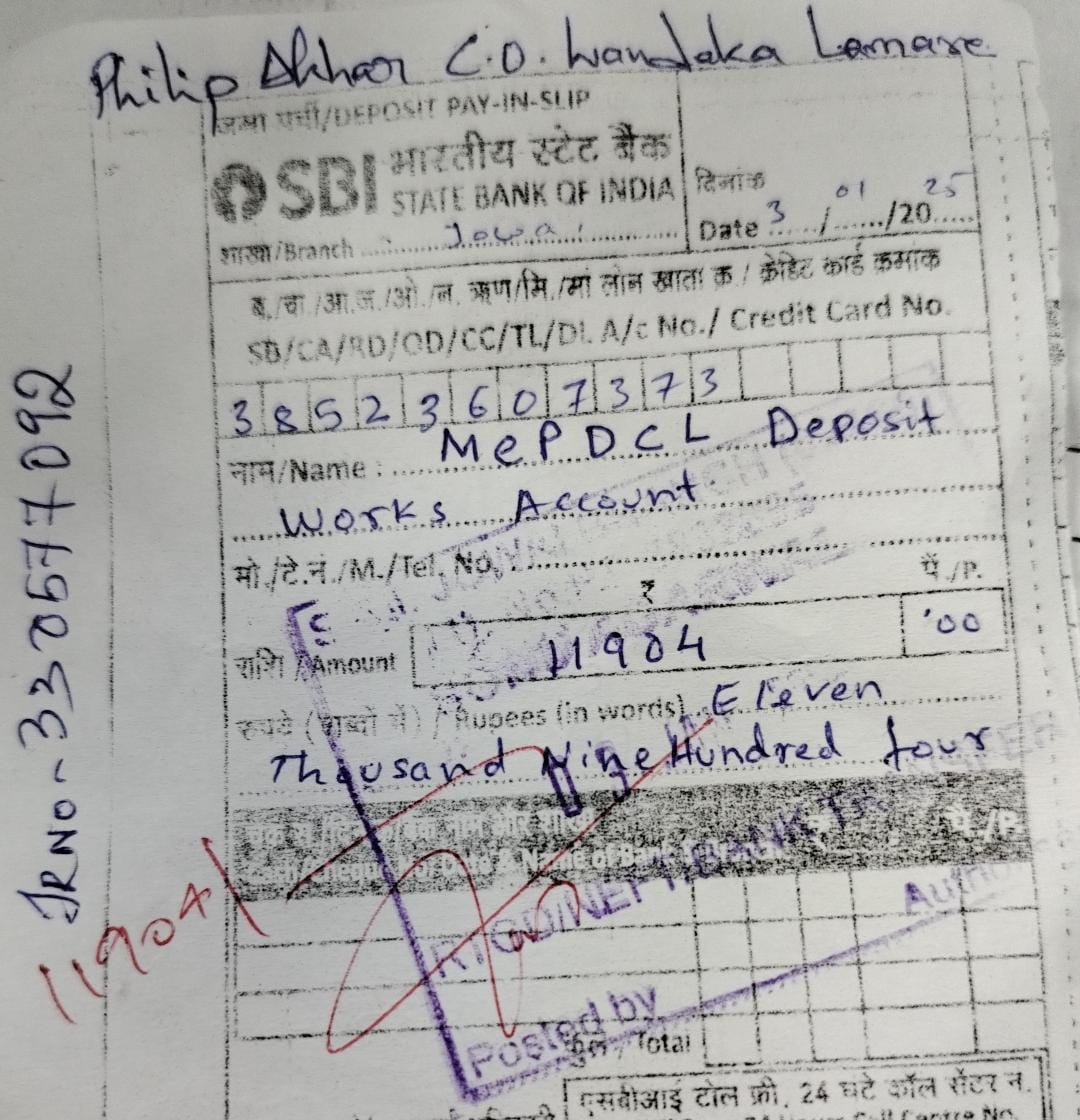 Philip Akhar C.O. Wandaka Lamare
जमा पर्ची/DEPOSIT PAY-IN-SLIP
SBI भारतीय स्टेट बैंक
STATE BANK OF INDIA
दिनांक
Date 3/01/2025
शाखा/Branch Jowai
ब./चा./आ.ज./ओ./न. ऋण/मि./मां लोन खाता क्र./ क्रेडिट कार्ड क्रमांक
SB/CA/RD/OD/CC/TL/DL A/c No./ Credit Card No.
38523607373
नाम/Name : MePDCL Deposit
Works Account
मो./टे.नं./M./Tel. No. :
₹ पै./P.
राशि / Amount 11904 '00
रुपये (शब्दों में) / Rupees (in words) Eleven
Thousand Nine Hundred four
पै./P
RTGD/NEFT
Posted by
कुल / Total
एसबीआई टोल फ्री, 24 घंटे कॉल सेंटर न.
JRNO-330577092
11904/